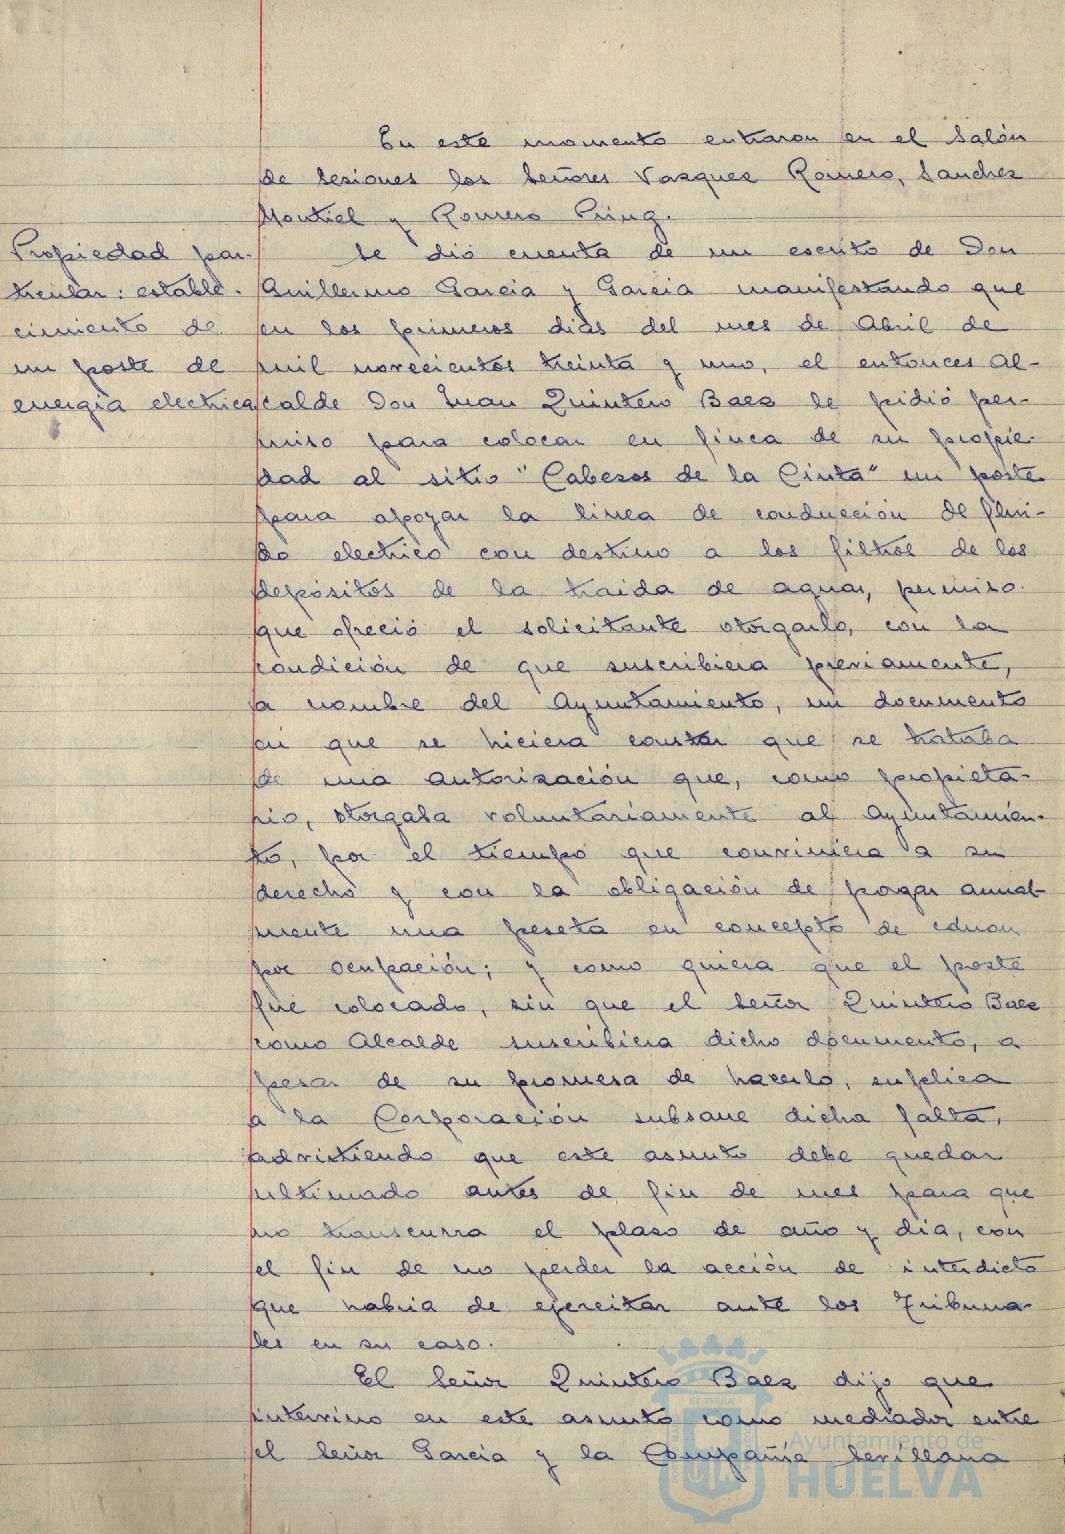 En este momento entraron en el Salón
de Sesiones los Señores Vazquez Romero, Sanchez
Montiel y Romero Pring.
Propiedad par-
ticular: estable-
cimiento de
un poste de
energia electrica
Se dió cuenta de un escrito de Don
Guillermo Garcia y Garcia manifestando que
en los primeros dias del mes de Abril de
mil novecientos treinta y uno, el entonces Al-
calde Don Juan Quintero Baez le pidió per-
miso para colocar en finca de su propie-
dad al sitio "Cabezos de la Cinta" un poste
para apoyar la linea de conducción de flui-
do electrico con destino a los filtros de los
depósitos de la traida de aguas, permiso
que ofreció el solicitante otorgarlo, con la
condición de que suscribiera previamente,
a nombre del Ayuntamiento, un documento
en que se hiciera constar que se trataba
de una autorización que, como propieta-
rio, otorgaba voluntariamente al Ayuntamien-
to, por el tiempo que conviniera a su
derecho y con la obligación de pagar anual-
mente una peseta en concepto de canon
por ocupación; y como quiera que el poste
fué colocado, sin que el Señor Quintero Baez
como Alcalde suscribiera dicho documento, a
pesar de su promesa de hacerlo, suplica
a la Corporación subsane dicha falta,
advirtiendo que este asunto debe quedar
ultimado antes de fin de mes para que
no transcurra el plazo de año y dia, con
el fin de no perder la acción de interdicto
que habria de ejercitar ante los Tribuna-
les en su caso.
El Señor Quintero Baez dijo que
intervino en este asunto como mediador entre
el Señor Garcia y la Compañia Sevillana
Ayuntamiento de
HUELVA